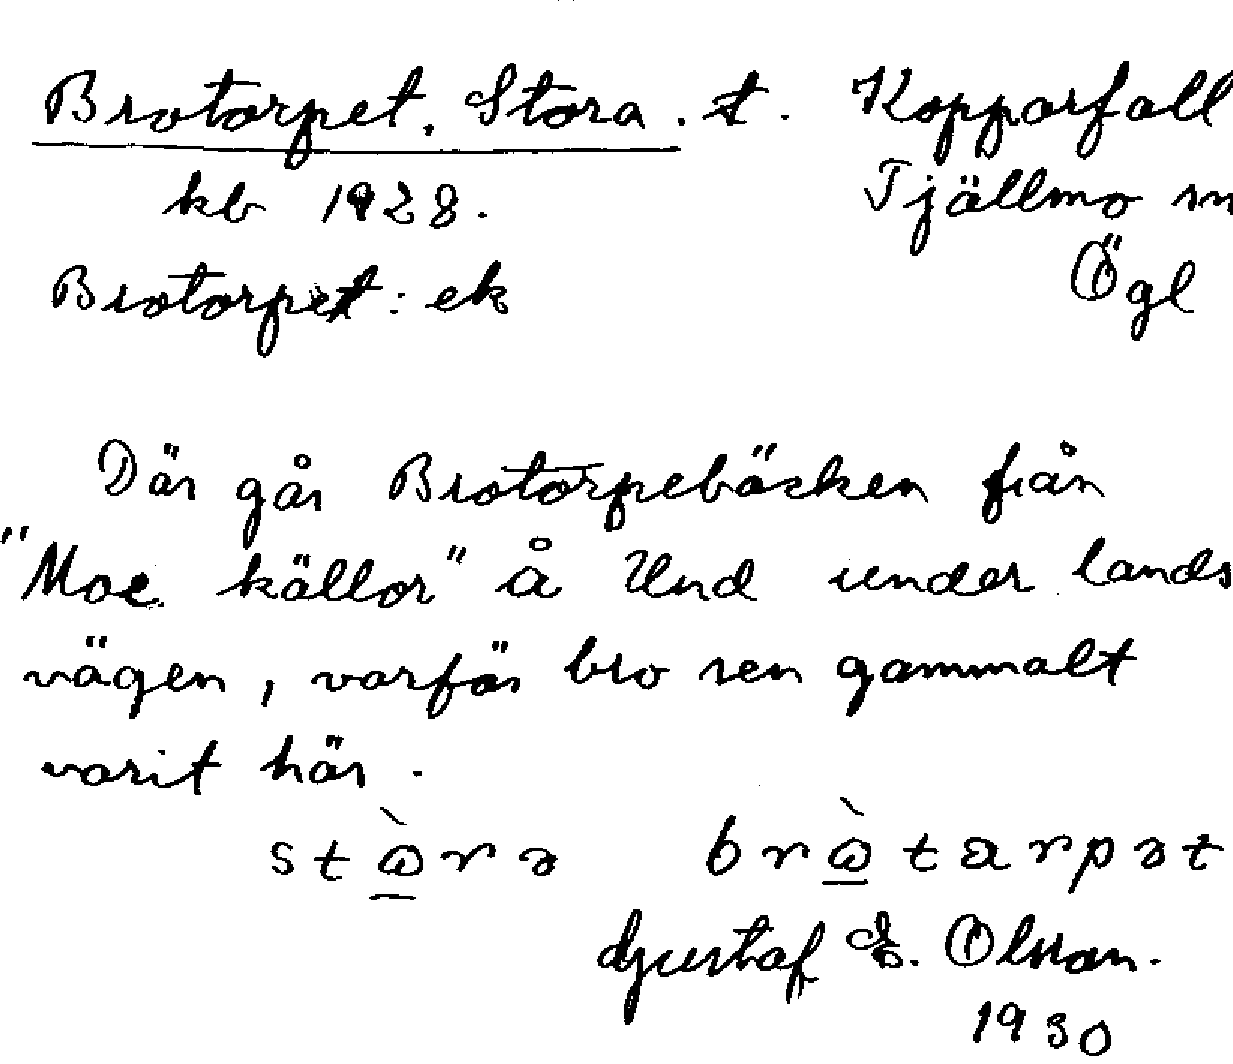 Brotorpet, Stora. t. Kopparfall
kb 1928. Tjällmo sn
Brotorpet: ek Ögl
Där går Brotorpebäcken från
"Moe källor" å Und under lands
vägen, varför bro sen gammalt
varit här.
Gustaf E. Olsson.
1930